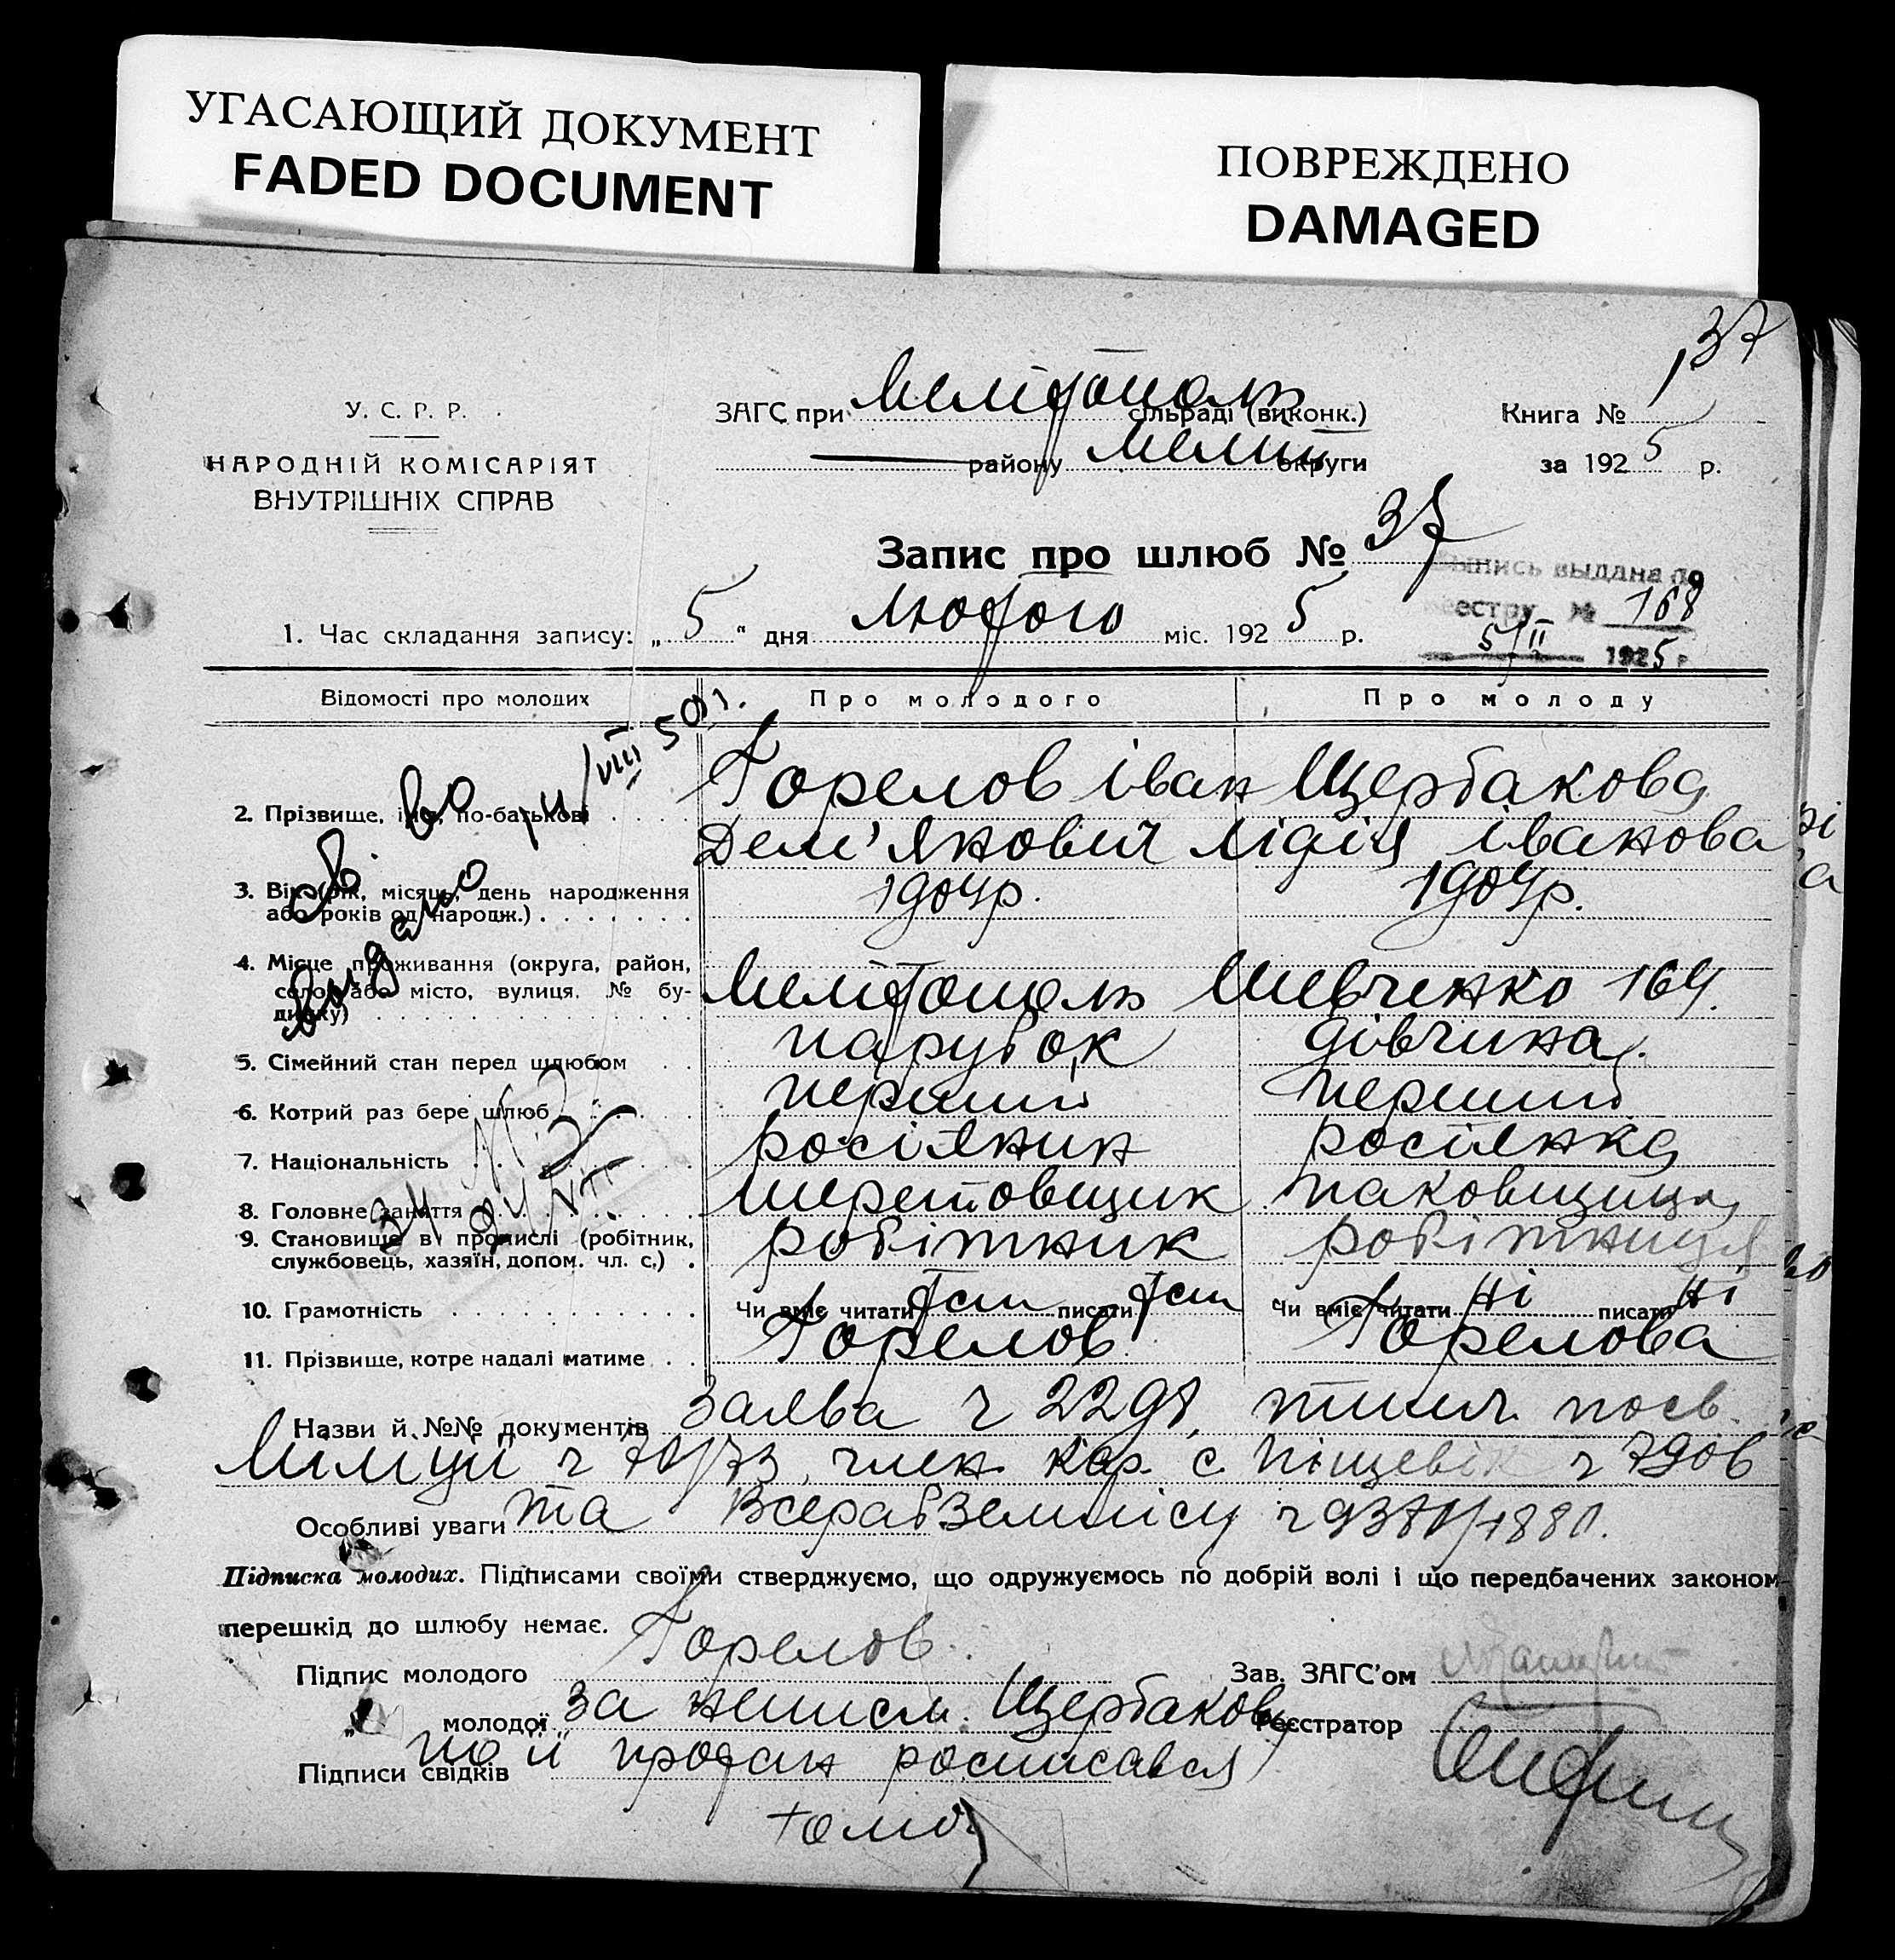 УГАСАЮЩИЙ ДОКУМЕНТ
FADED DOCUMENT
ПОВРЕЖДЕНО
DAMAGED
37
У. С. Р. Р.
НАРОДНІЙ КОМІСАРІЯТ
ВНУТРІШНІХ СПРАВ
ЗАГС при Мелітополь сільраді (виконк.)
району Меліт округи
Книга №
за 1925 р.
Запис про шлюб № 37
Выпись выдана по
реестру № 168
5/II 1925 г
1. Час складання запису: „5“ дня Лютого міс. 1925 р.
Відомості про молодих Про молодого Про молоду
2. Прізвище, ім'я, по-батькові Горелов іван Щербакова
Дем'янович Лідія іванова
3. Вік (рік, місяць, день народження 1904р. 1904р.
або років од народж.)
4. Місце проживання (округа, район,
село або місто, вулиця, № бу- Мелітополь Шевченко 164.
динку)
5. Сімейний стан перед шлюбом парубок дівчина
6. Котрий раз бере шлюб перший перший
7. Національність росіянин росіянка
8. Головне заняття шеретовщик паковщиця
9. Становище в промислі (робітник, робітник робітниця
службовець, хазяїн, допом. чл. с.)
10. Грамотність Чи вміє читати писати Чи вміє читати Ні писати Ні
11. Прізвище, котре надалі матиме Горелов Горелова
Назви й №№ документів Заява ч посв.
член с ч
Особливі уваги та Всерабземлісу ч
Підписка молодих. Підписами своїми стверджуємо, що одружуємось по добрій волі і що передбачених законом
перешкід до шлюбу немає.
Підпис молодого Горелов Зав. ЗАГС'ом
„ молодої за неписм. Щербакову Реєстратор
Підписи свідків по її росписався
видано
VIII 50 г.